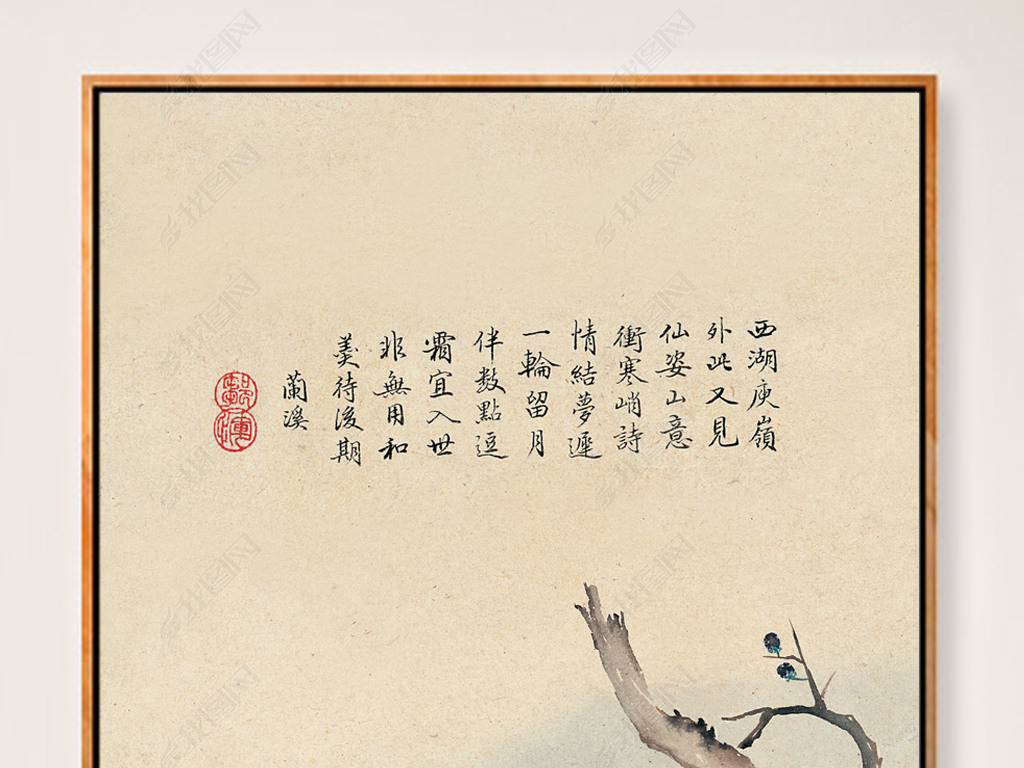 西湖庾嶺
外此又見
仙姿山意
衝寒峭詩
情結夢遲
一輪留月
伴數點逗
霜宜入世
非無用和
羹待後期
蘭溪